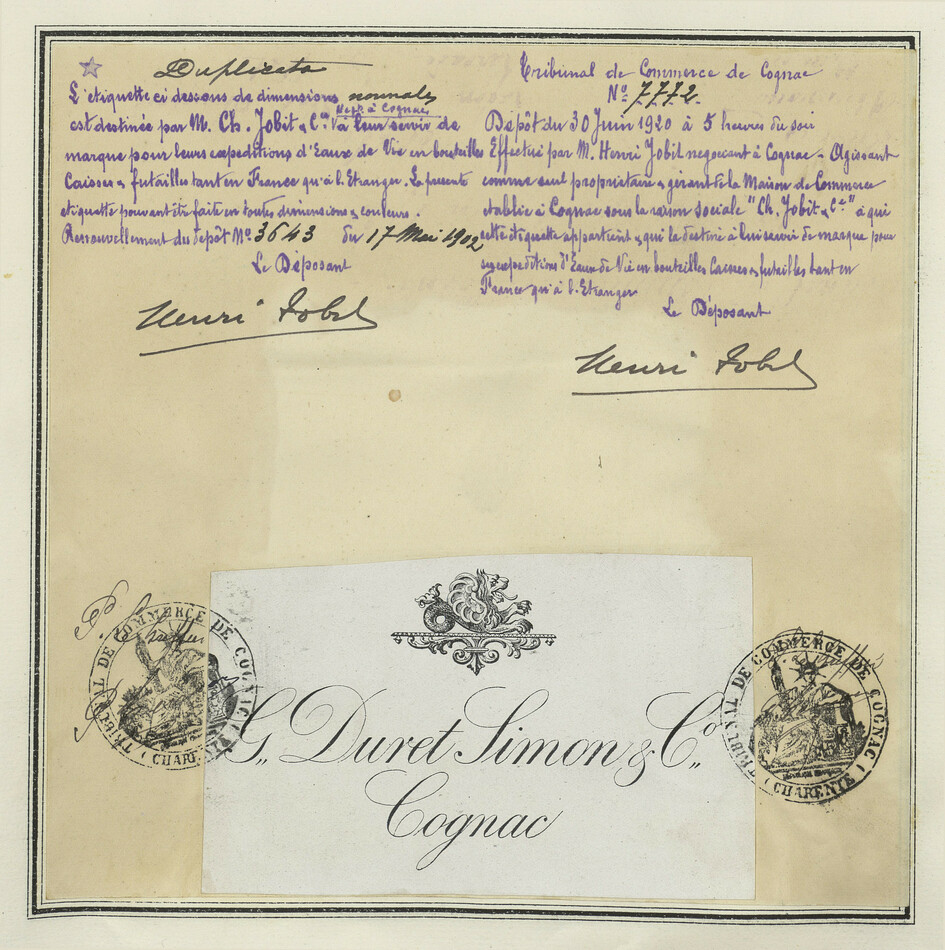 Duplicata
L'etiquette ci dessous de dimensions normales
est destinée par M. Ch. Jobit & Cie Negts à Cognac à leur servir de
marque pour leurs expeditions d'Eaux de Vie en bouteilles
Caisses & futailles tant en France qu'à l'Etranger. La présente
etiquette pouvant être faite en toutes dimensions & couleurs.
Renouvellement du dépôt No 3643 du 17 Mai 1902
Le Déposant
Henri Jobit
Tribunal de Commerce de Cognac
No 7772.
Dépôt du 30 Juin 1920 à 5 heures du soir
Effectué par M. Henri Jobit negociant à Cognac - Agissant
comme seul propriétaire & gérant de la Maison de Commerce
etablie à Cognac sous la raison sociale "Ch. Jobit & Cie" à qui
cette étiquette appartient & qui la destine à lui servir de marque pour
ses expeditions d'Eaux de Vie en bouteilles Caisses & futailles tant en
France qu'à l'Etranger
Le Déposant
Henri Jobit
TRIBUNAL DE COMMERCE DE COGNAC
(CHARENTE)
G. Duret Simon & Co
Cognac
TRIBUNAL DE COMMERCE DE COGNAC
(CHARENTE)